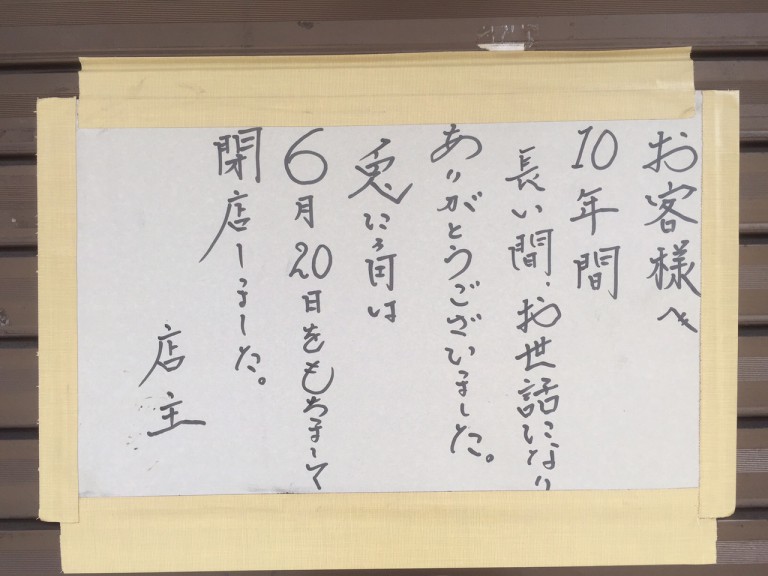 お客様へ
10年間
長い間、お世話になり
ありがとうございました。
兎に は
6月20日をもちまして
閉店しました。
店主